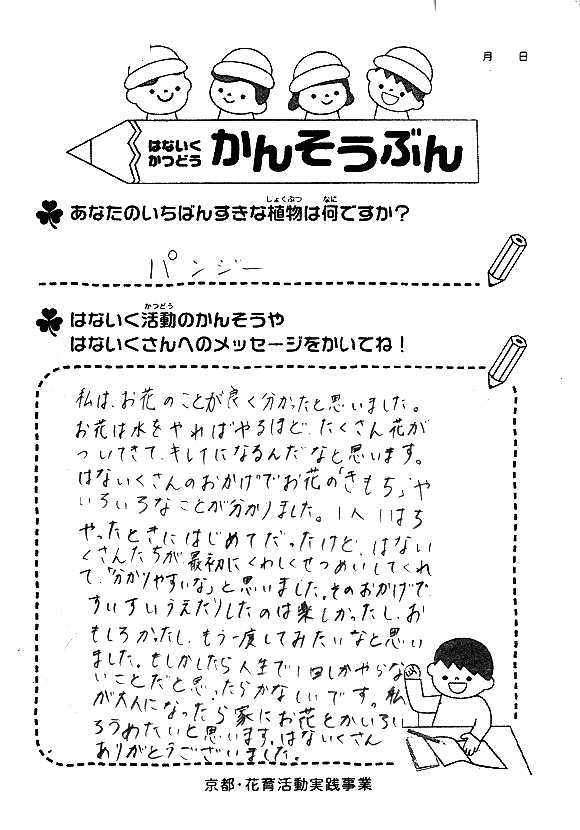 月 日
はないく
かつどう
かんそうぶん
あなたのいちばんすきな植物は何ですか？
しょくぶつ なに
パンジー
かつどう
はないく活動のかんそうや
はないくさんへのメッセージをかいてね！
私は、お花のことが良く分かったと思いました。
お花は水をやればやるほど、たくさん花が
ついてきて、キレイになるんだなと思います。
はないくさんのおかげでお花の「きもち」や
いろいろなことが分かりました。1人1はち
やったときにはじめてだったけど、はない
くさんたちが最初にくわしくせつめいしてくれ
て、「分かりやすいな」と思いました。そのおかげで
すいすいうえたりしたのは楽しかったし、お
もしろかったし、もう一度してみたいなと思い
ました。もしかしたら人生で1回しかやらな
いことだと思ったらかなしいです。私
が大人になったら家にお花とかいろい
ろうめたいと思います。はないくさん
ありがとうございました。
京都・花育活動実践事業